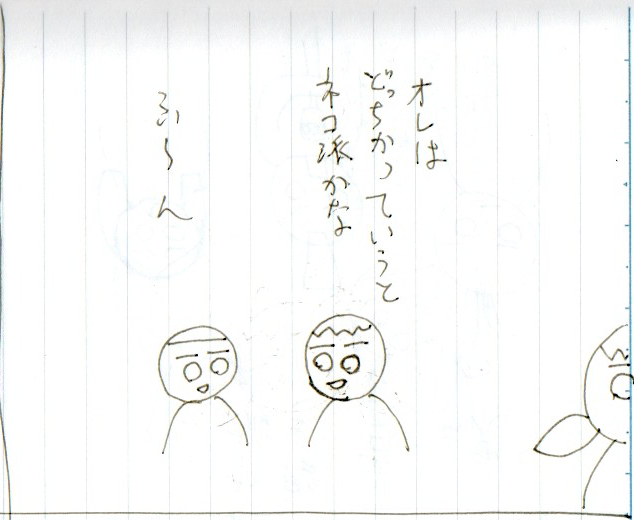 オレは
どっちかっていうと
ネコ派かな
ふーん